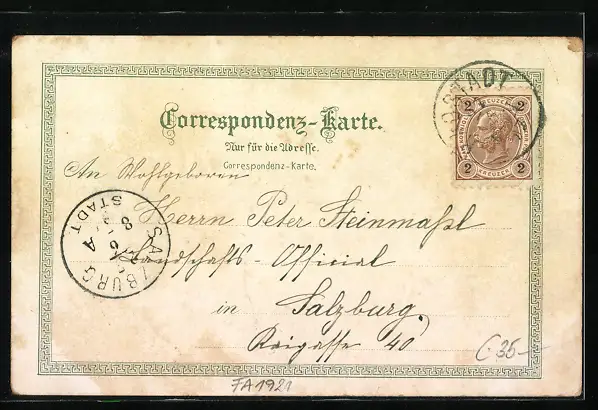 Correspondenz-Karte.
Nur für die Adresse.
Correspondenz-Karte.
An Wohlgeboren
Herrn Peter Steinmaßl
Landschafts-Official
in Salzburg.
Kaigasse 40
SALZBURG
STADT.
STADT
2 KREUZER 2
2 KREUZER 2
C 35-
FA1921